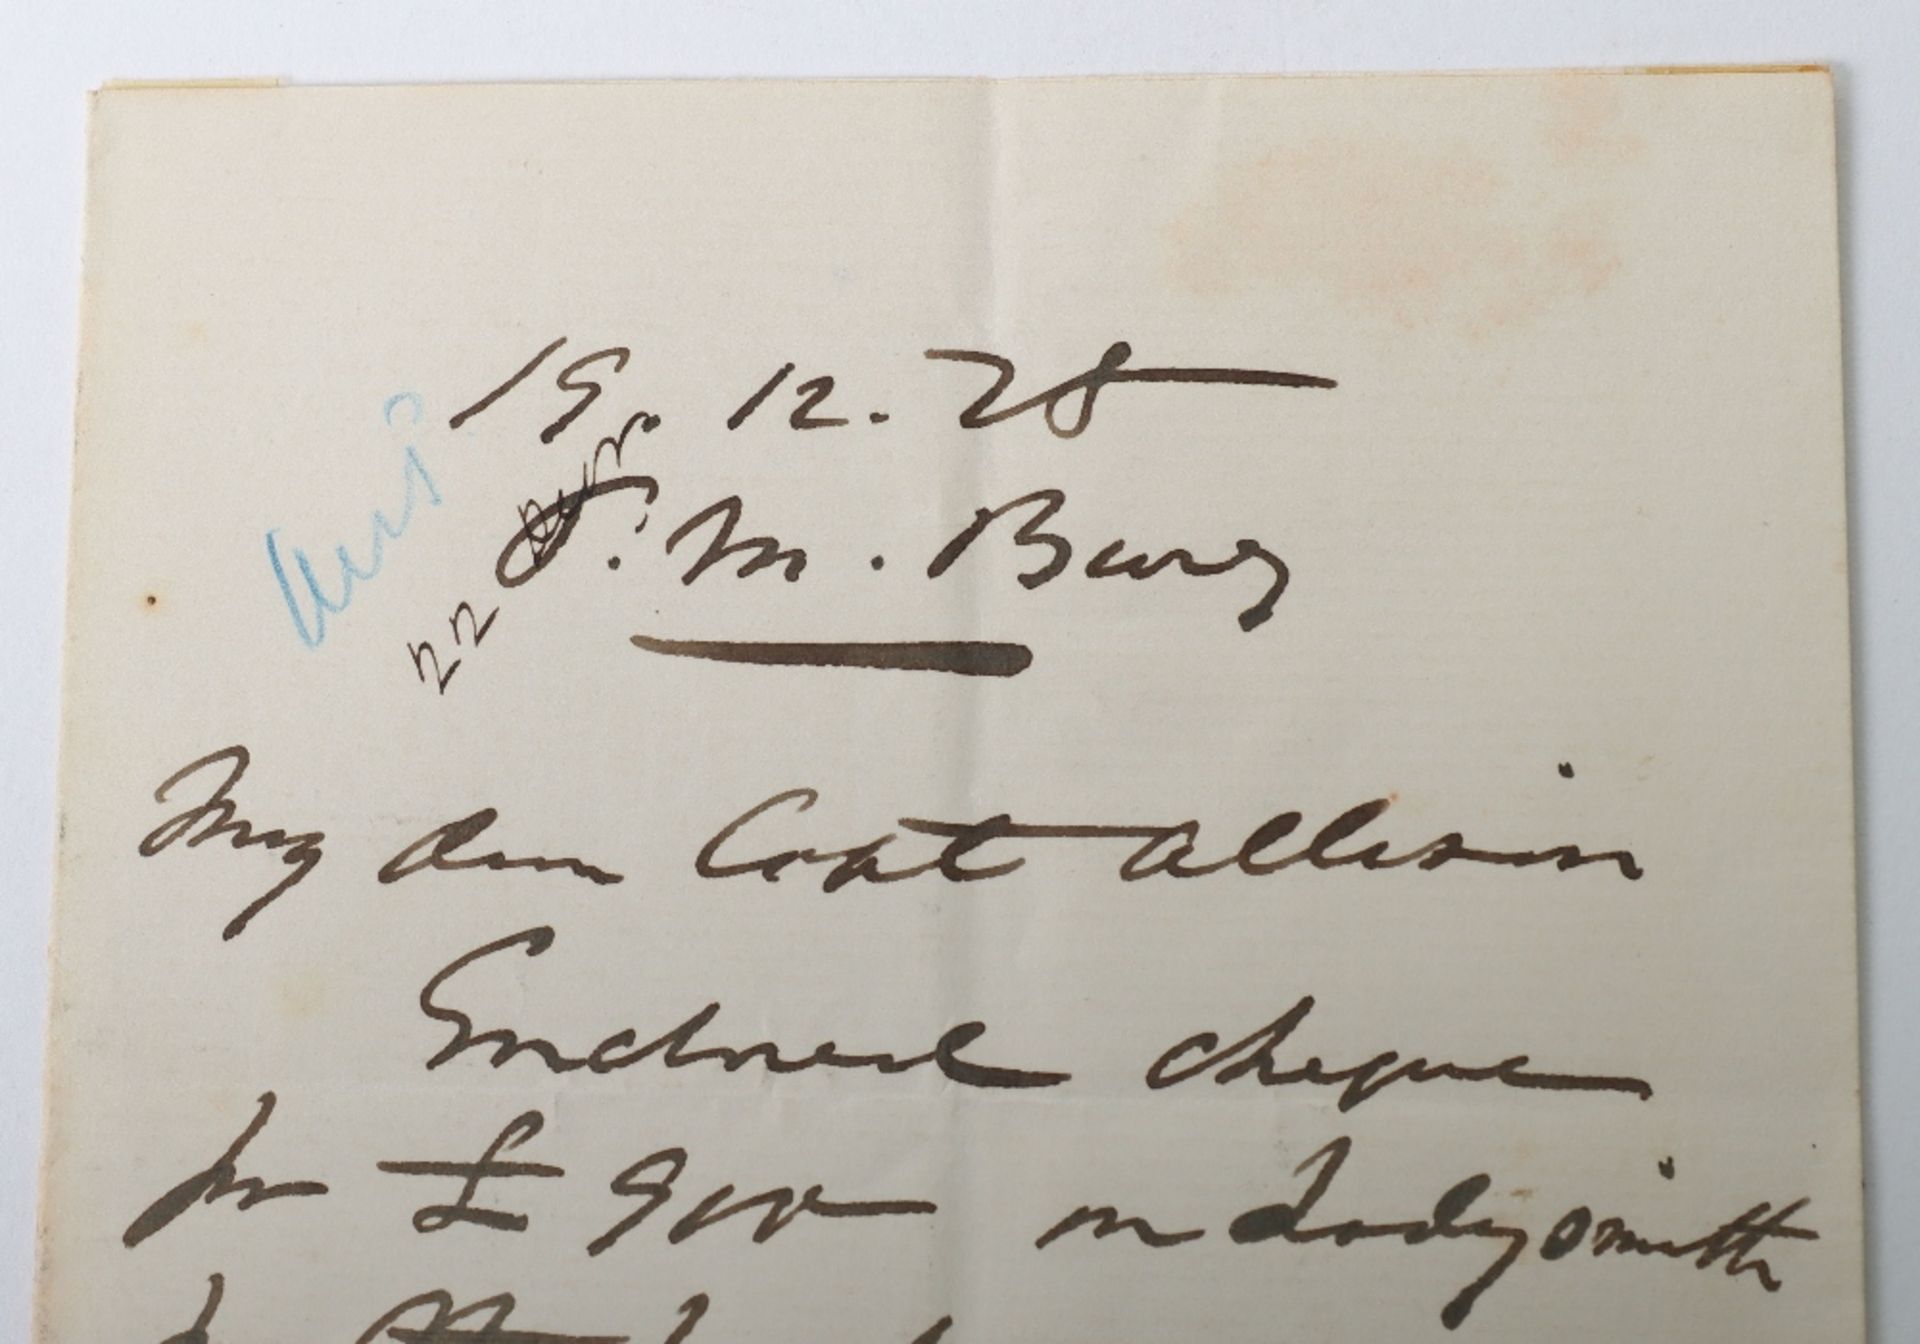 19. 12. 78
P. M. Burg
22
My dear Capt Allison
Enclosed cheque
for £ 900 on Ladysmith